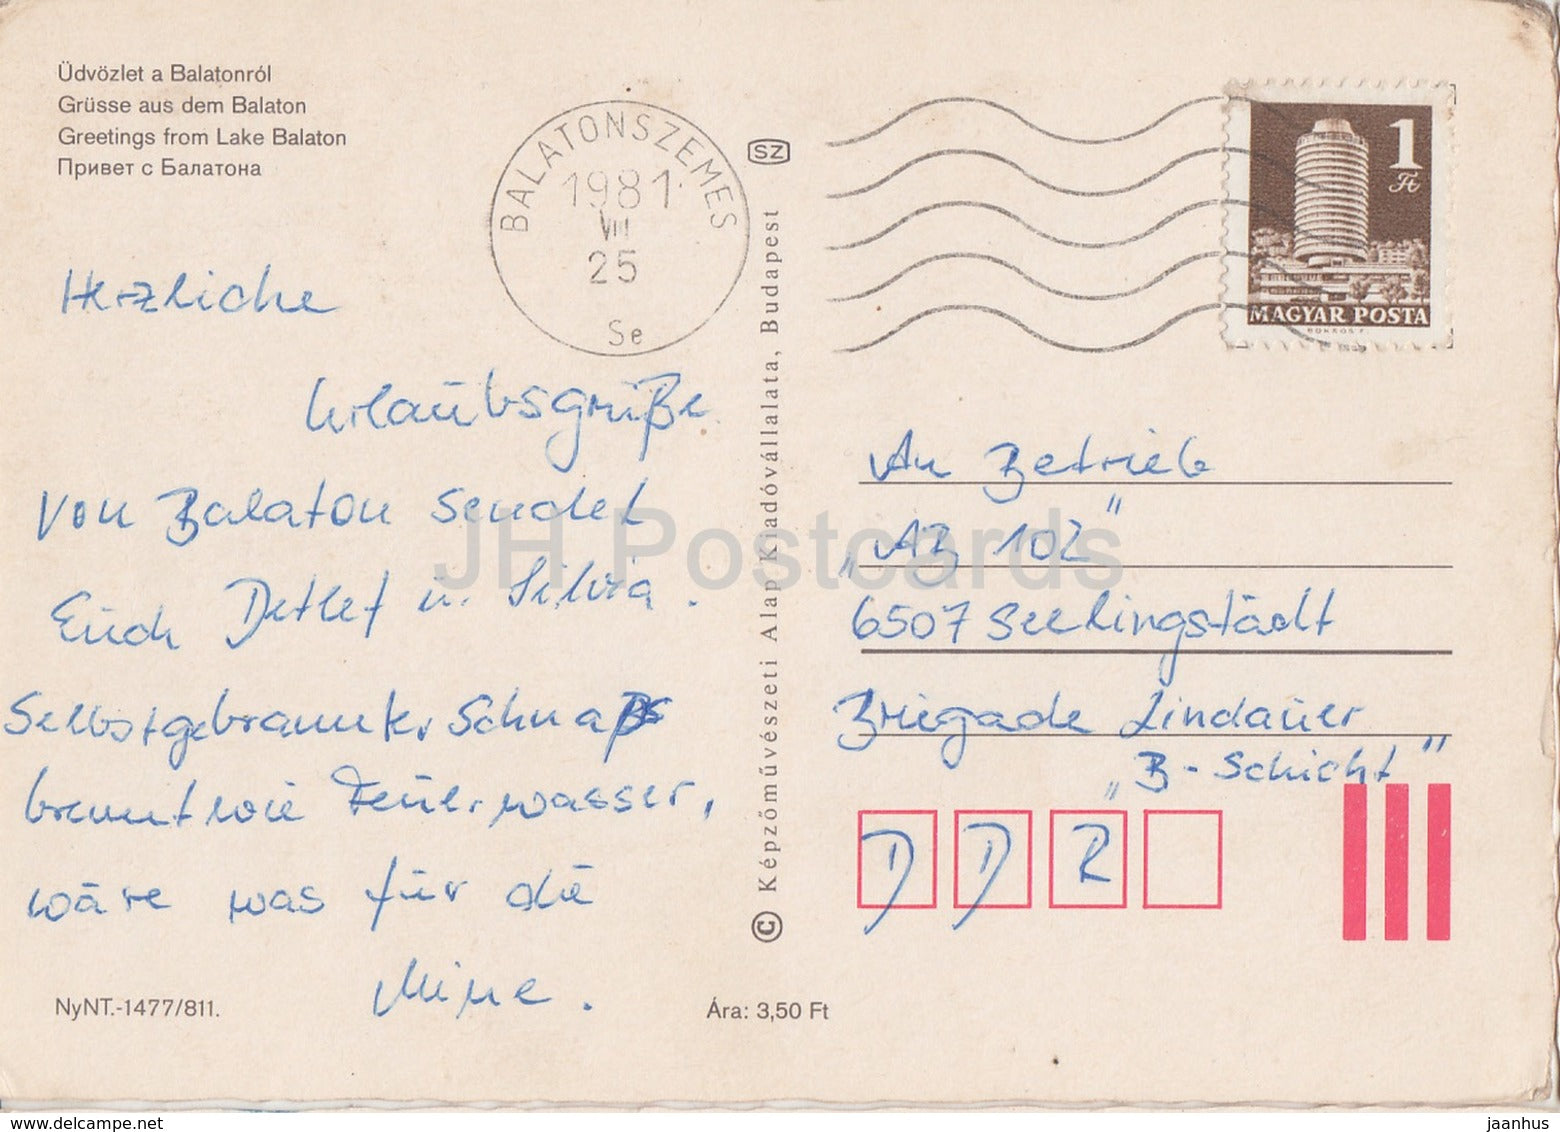 Üdvözlet a Balatonról
Grüsse aus dem Balaton
Greetings from Lake Balaton
Привет с Балатона
BALATONSZEMES
1981
VII
25
Se
SZ
1
Ft
MAGYAR POSTA
Herzliche
Urlaubsgrüße
von Balaton sendet
Euch Detlef u. Silvia.
Selbstgebrannter Schnaps
brennt wie Feuerwasser,
wäre was für die
Mine.
NyNT.-1477/811.
Ára: 3,50 Ft
© Képzőművészeti Alap Kiadóvállalata, Budapest
An Betrieb
„AB 102"
6507 Seelingstädt
Brigade Lindauer
„B-Schicht"
D D R
JH Postcards
jaanhus